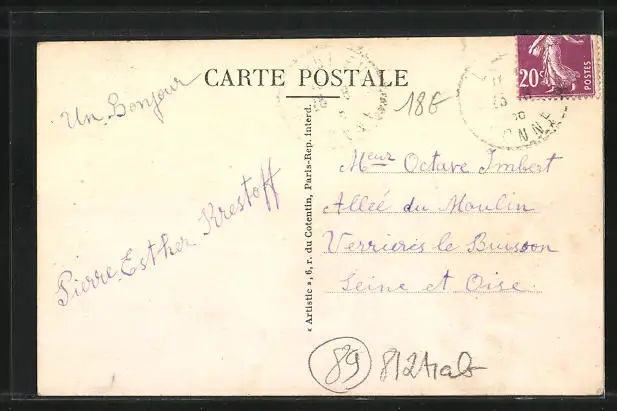 CARTE POSTALE
Un Bonjour
Pierre Esther Krestoff
« Artistic », 6, r. du Cotentin, Paris-Rep. interd.
18€
20c
POSTES
ONNE
Meur Octave Imbert
Alleé du Moulin
Verrieres le Buisson
Seine et Oise.
89